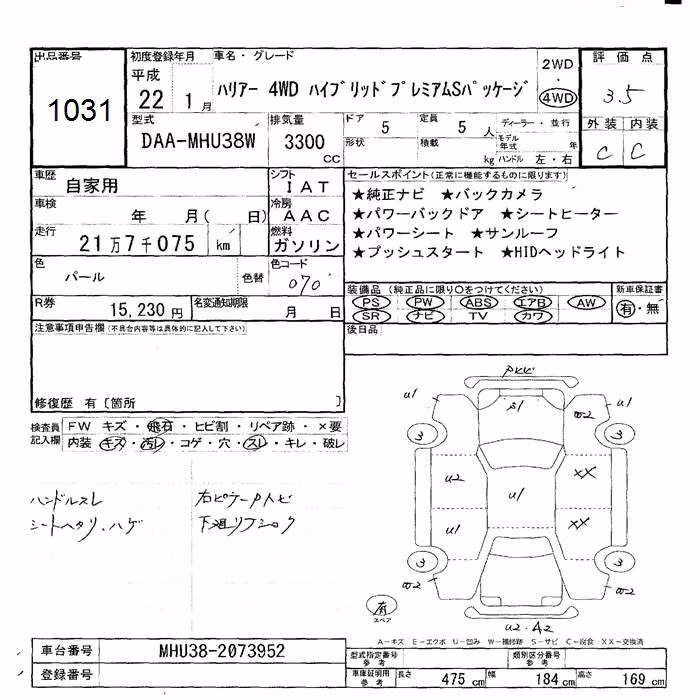 出品番号
1031
初度登録年月
平成
22 1月
車名・グレード
ハリアー 4WD ハイブリッドプレミアムSパッケージ
2WD
4WD
評価点
3.5
型式
DAA-MHU38W
排気量
3300
CC
ドア
5
定員
5 人
ディーラー・並行
形状
積載
kg
モデル年式 年
ハンドル 左・右
外装 内装
C C
車歴
自家用
シフト
IAT
車検
年 月( 日)
冷房
AAC
走行
21万7千075 km
燃料
ガソリン
色
パール
色替
色コード
070
R券
15,230 円
名変通知期限
月 日
セールスポイント(正常に機能するものに限ります)
★純正ナビ ★バックカメラ
★パワーバックドア ★シートヒーター
★パワーシート ★サンルーフ
★プッシュスタート ★HIDヘッドライト
装備品 (純正品に限り○をつけてください)
PS PW ABS エアB AW
SR ナビ TV カワ
新車保証書
有・無
後日品
注意事項申告欄(不具合内容等は具体的に記入して下さい)
修復歴 有〔箇所 〕
検査員記入欄
FW キズ・飛石・ヒビ割・リペア跡・×要
内装 キズ・汚レ・コゲ・穴・スレ・キレ・破レ
ハンドルスレ
シートヘタリ、ハゲ
右ピラーPトビ
下廻リフショク
Pトビ
U1
S1
W2
3
3
U2
XX
U1
U1
XX
3
3
W2
W2
有
スペア
U2・A2
A-キズ E-エクボ U-凹み W-補修跡 S-サビ C-腐食 XX-交換済
車台番号
MHU38-2073952
登録番号
型式指定番号
参考
類別区分番号
参考
車庫証明用
参考
長さ 475 cm 幅 184 cm 高さ 169 cm